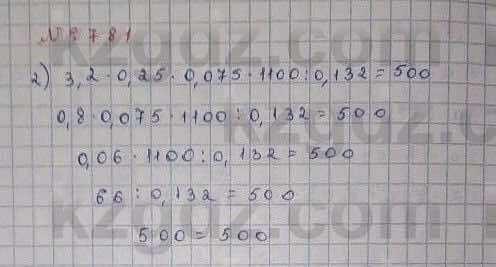 № 781
2) 3,2 · 0,25 · 0,075 · 1100 : 0,132 = 500
0,8 · 0,075 · 1100 : 0,132 = 500
0,06 · 1100 : 0,132 = 500
66 : 0,132 = 500
500 = 500
kzgdz.com